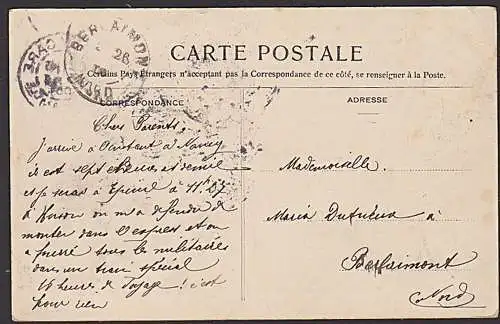 CARTE POSTALE
Certains Pays Étrangers n'acceptant pas la Correspondance de ce côté, se renseigner à la Poste.
BERLAIMONT
26
NORD
GARE
CORRESPONDANCE
Chers Parents,
J'arrive à l'instant à Nancy
il est sept heures et demie
et je serai à Epinal à 11h 07
à Hirson on m'a défendu de
monter dans l'express et on
a fourré tous les militaires
dans un train spécial
14 heures de voyage! c'est
pour rien
ADRESSE
Mademoiselle
Maria Dufrénes à
Berlaimont
Nord